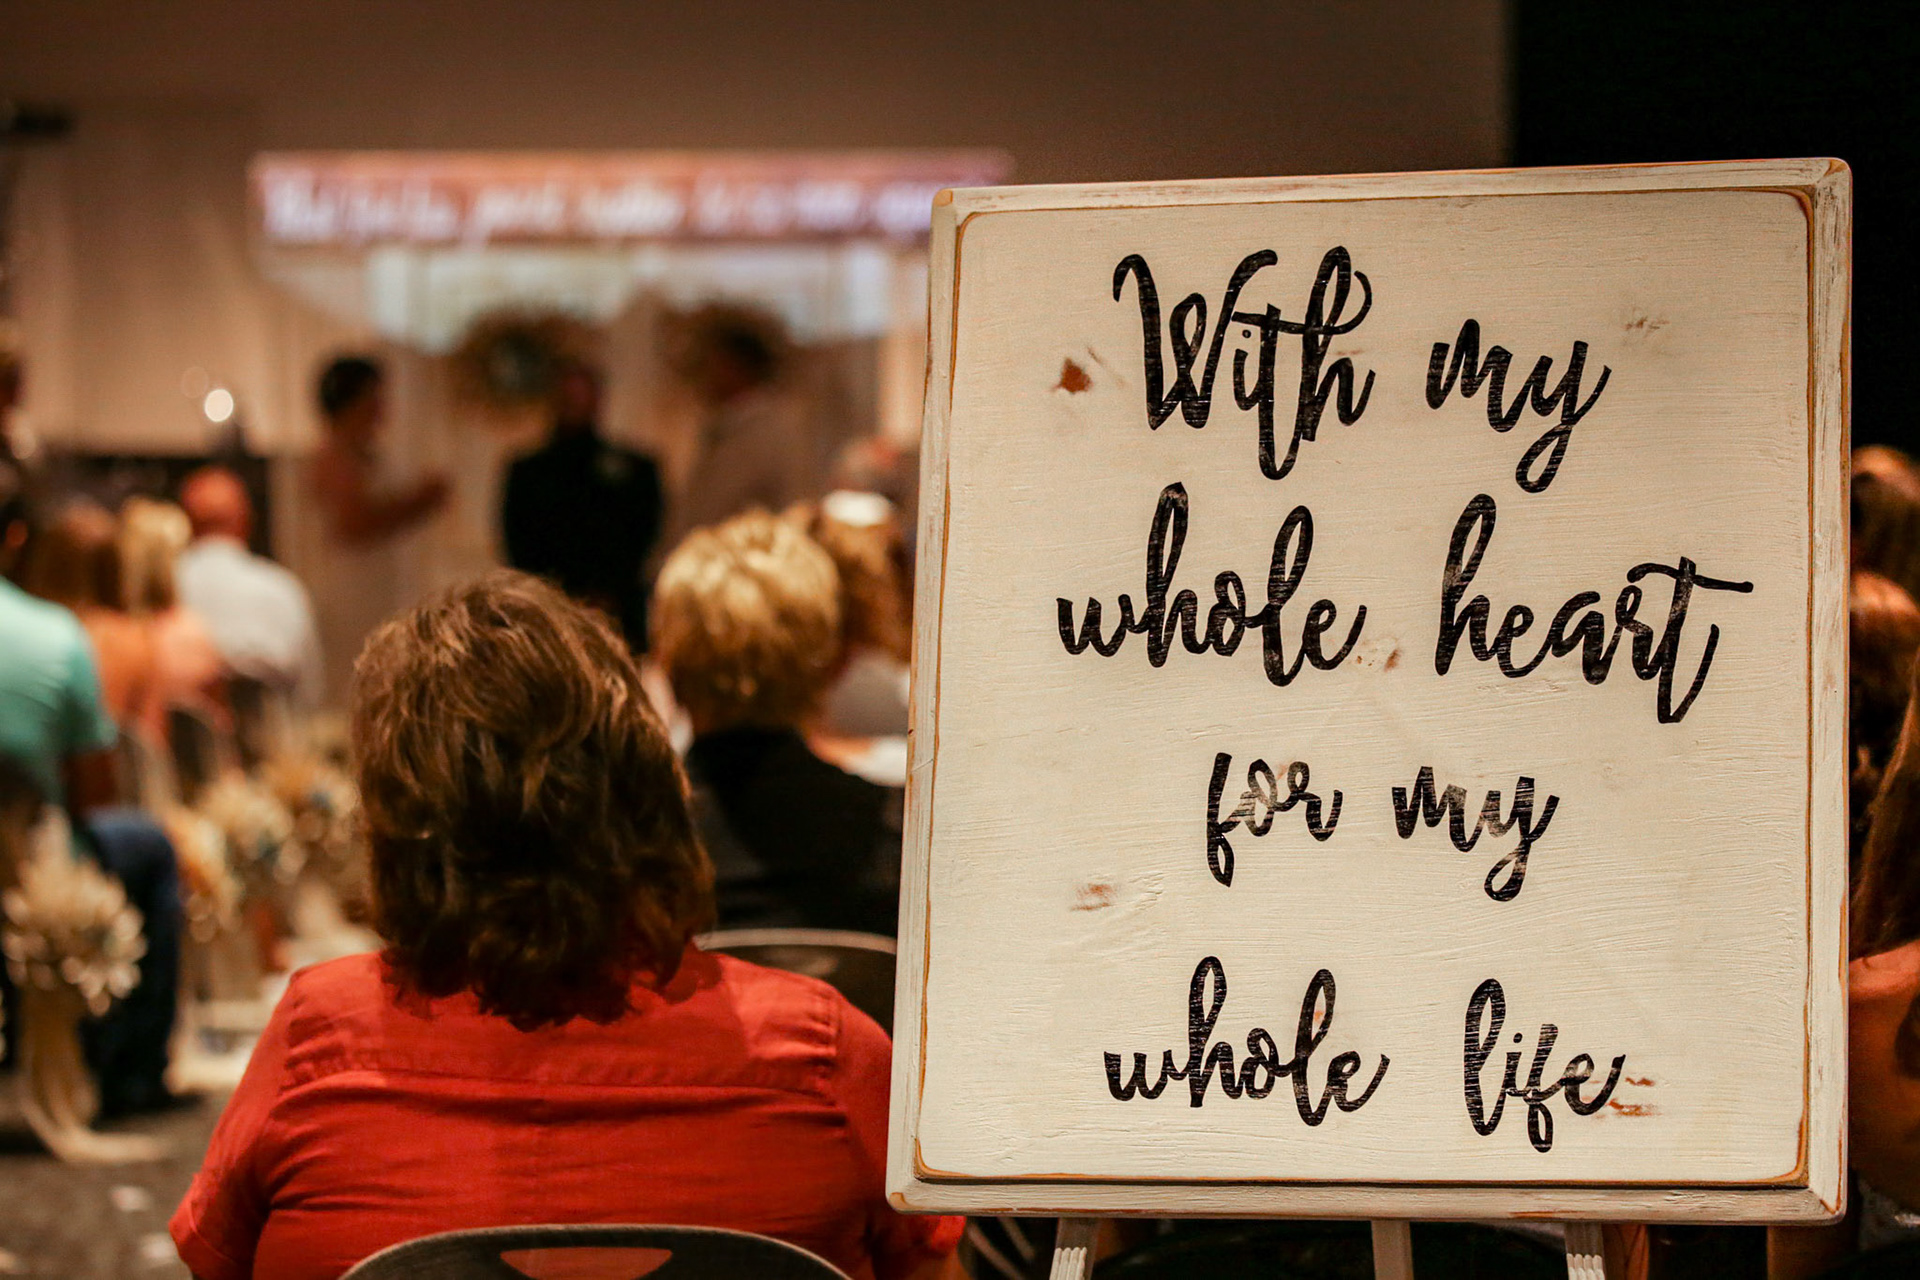 With my
whole heart
for my
whole life